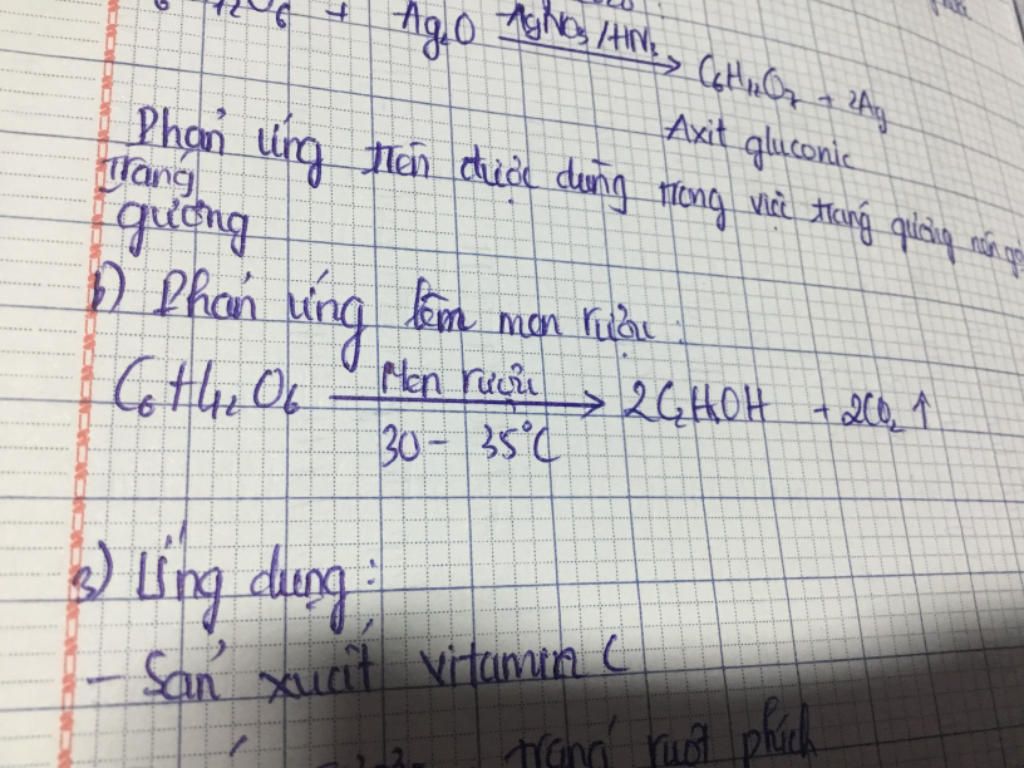 C₆H₁₂O₆ + Ag₂O AgNO₃/HN₃ → C₆H₁₂O₇ + 2Ag
Axit gluconic
Phản ứng trên được dùng trong việc tráng gương
tráng
gương
b) Phản ứng lêm men rượu:
C₆H₁₂O₆ Men rượu → 2C₂H₅OH + 2CO₂ ↑
30 - 35°C
3) Ứng dụng:
- Sản xuất vitamin C
tráng ruột phích